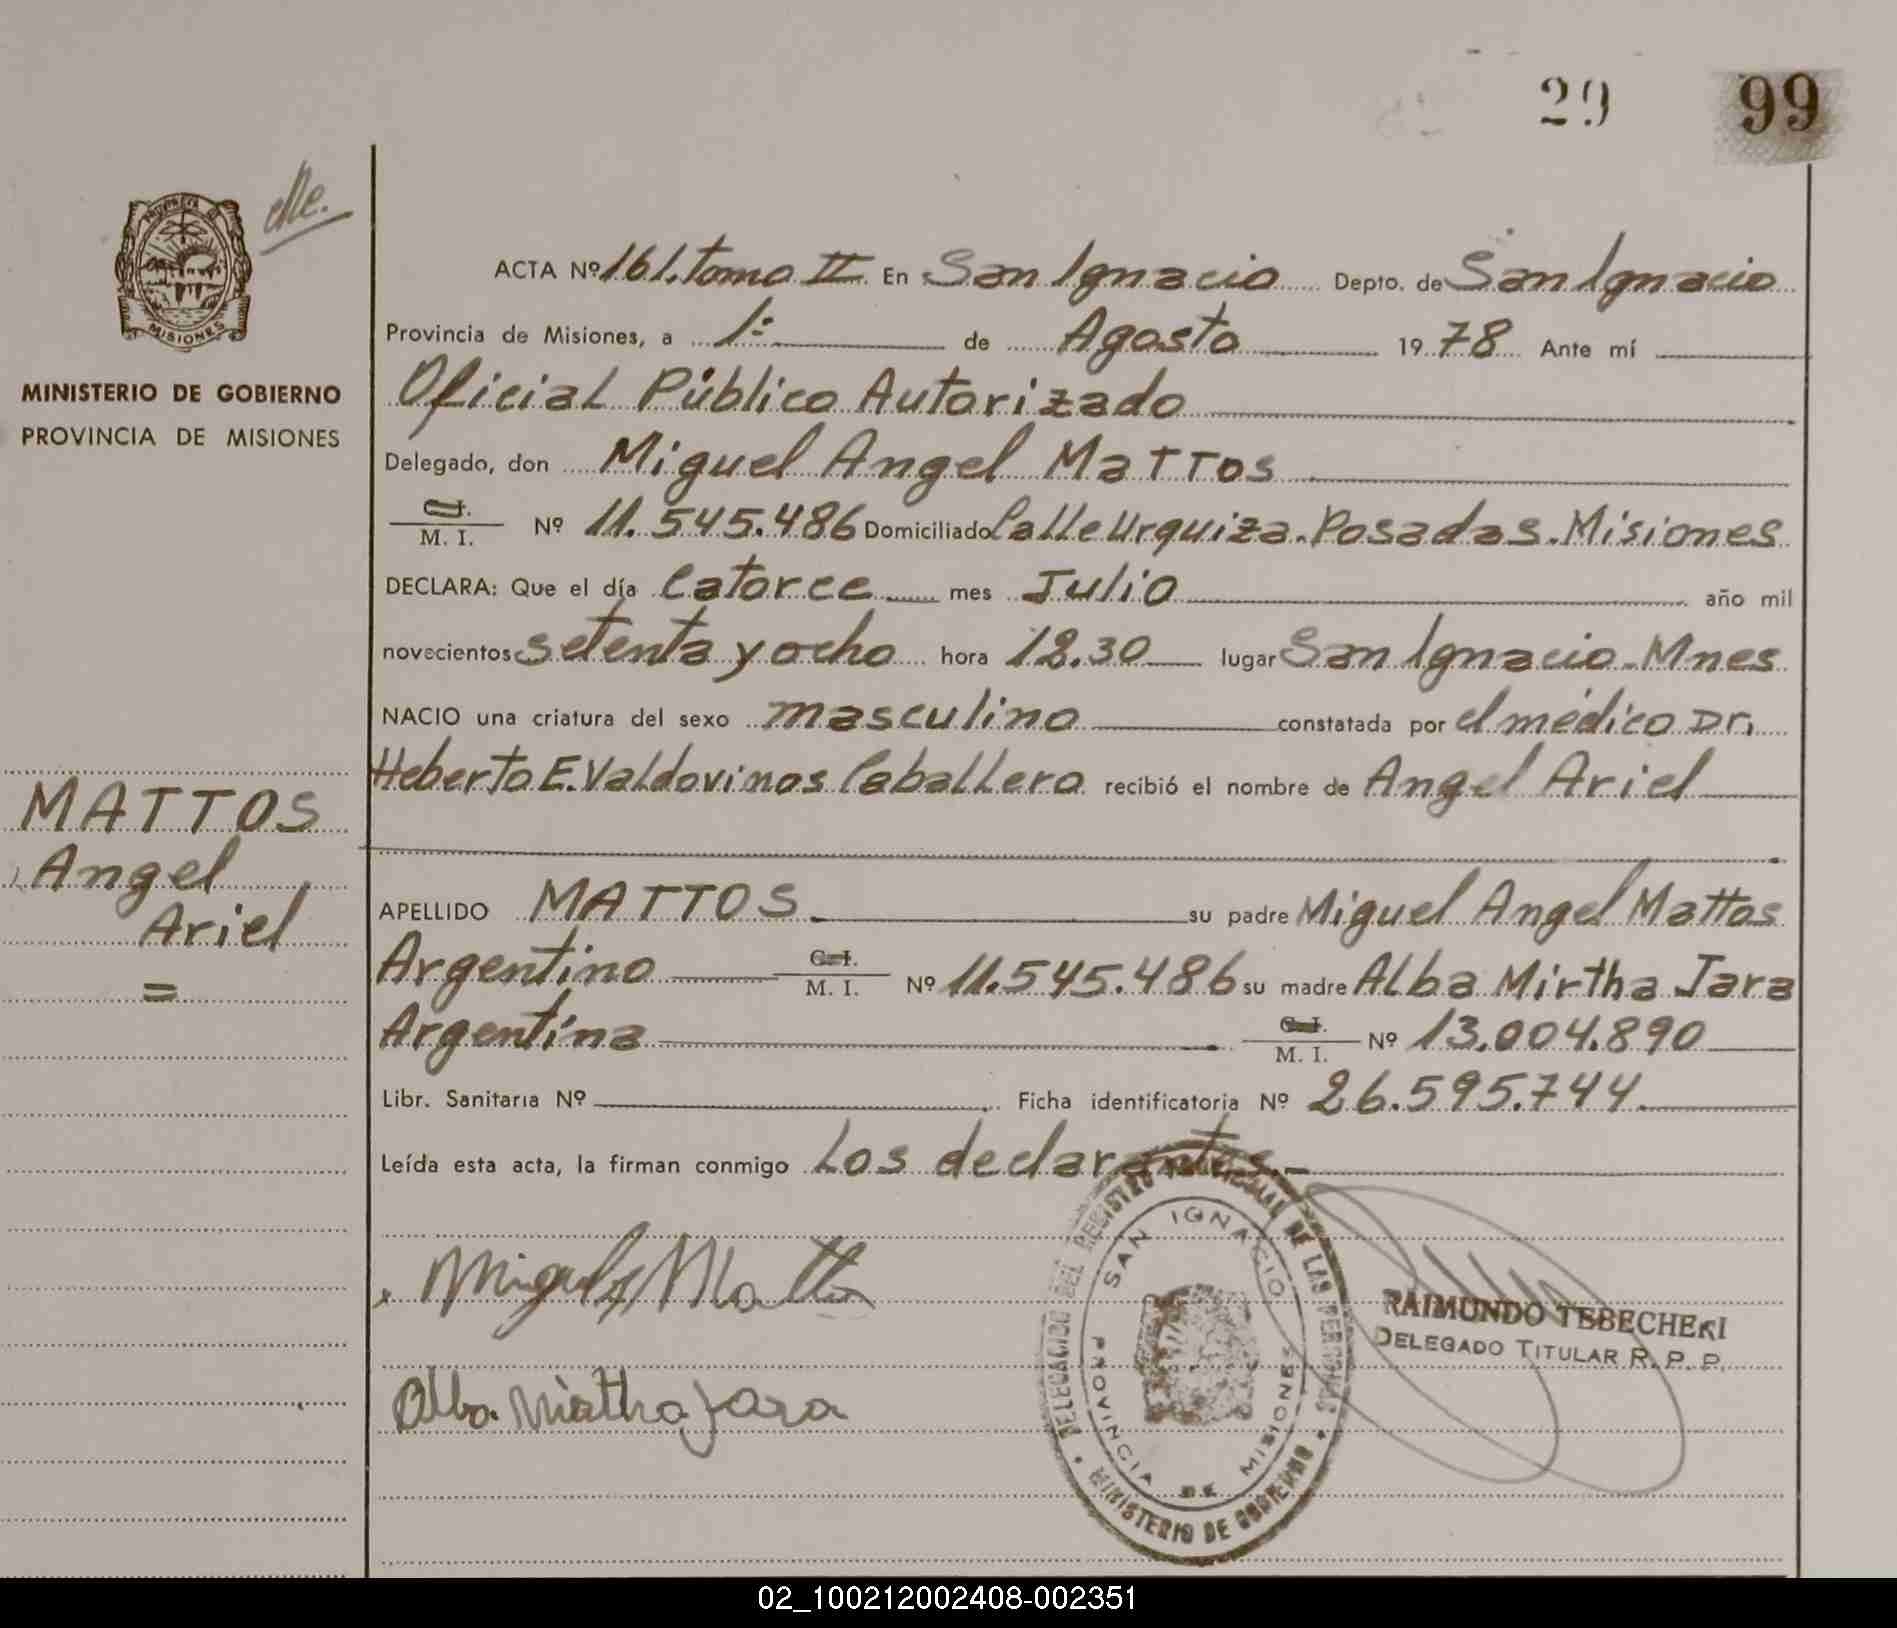 29 99
PROVINCIA DE
MISIONES
MINISTERIO DE GOBIERNO
PROVINCIA DE MISIONES
ACTA Nº 161. Tomo II En San Ignacio Depto. de San Ignacio
Provincia de Misiones, a 1º de Agosto 1978 Ante mí
Oficial Público Autorizado
Delegado, don Miguel Angel Mattos
C. I.
M. I. Nº 11.545.486 Domiciliado Calle Urquiza. Posadas. Misiones
DECLARA: Que el día Catorce mes Julio año mil
novecientos setenta y ocho hora 12.30 lugar San Ignacio. Mnes
NACIO una criatura del sexo masculino constatada por el médico Dr.
Heberto E. Valdovinos Caballero recibió el nombre de Angel Ariel
MATTOS
Angel
Ariel
=
APELLIDO MATTOS su padre Miguel Angel Mattos
Argentino C. I.
M. I. Nº 11.545.486 su madre Alba Mirtha Jara
Argentina C. I.
M. I. Nº 13.004.890
Libr. Sanitaria Nº Ficha identificatoria Nº 26.595.744
Leída esta acta, la firman conmigo Los declarantes.-
Miguel A Mattos
Alba Mirtha Jara
DELEGACION DEL REGISTRO PROVINCIAL DE LAS PERSONAS
SAN IGNACIO
PROVINCIA DE MISIONES
MINISTERIO DE GOBIERNO
RAIMUNDO TEBECHERI
DELEGADO TITULAR R. P. P.
02_100212002408-002351